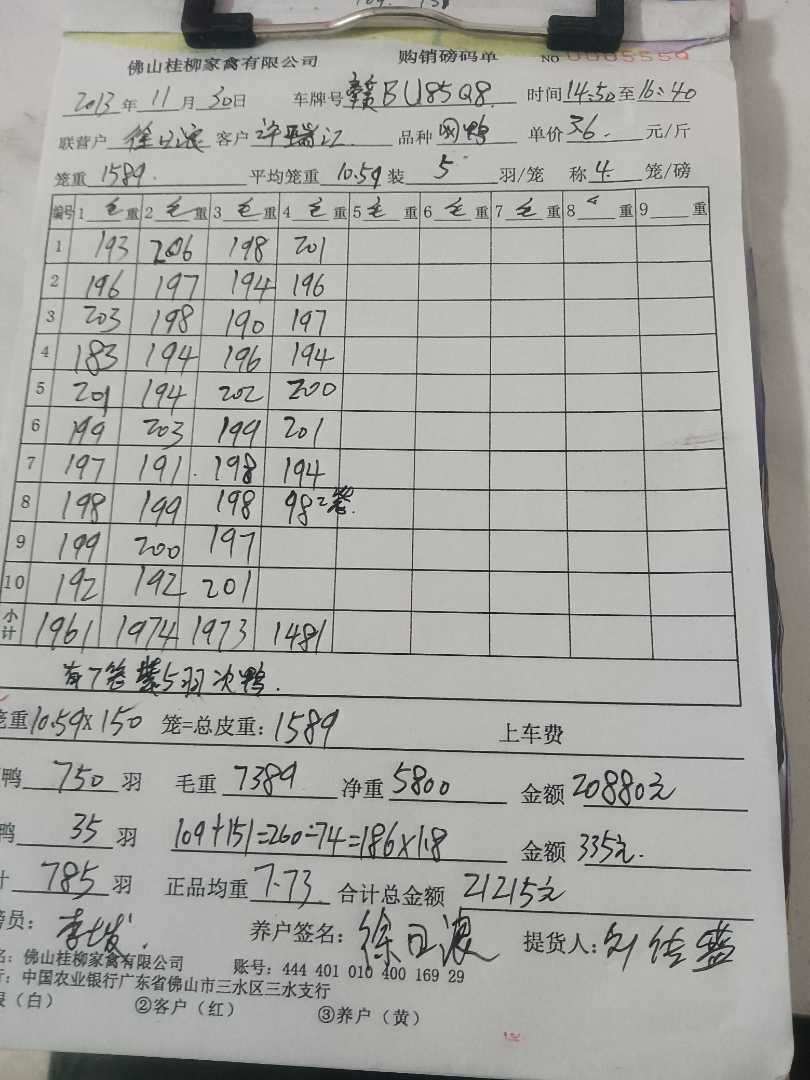 佛山桂柳家禽有限公司 购销磅码单 NO 0005550
2013年11月30日 车牌号赣BU85Q8 时间14:50至16:40
联营户 徐日浪 客户 许瑞江 品种 网鸭 单价3.6 元/斤
笼重1589 平均笼重10.59装 5 羽/笼 称4笼/磅
编号 1毛重 2毛重 3毛重 4毛重 5毛重 6毛重 7毛重 8重 9重
1 193 206 198 201
2 196 197 194 196
3 203 198 190 197
4 183 194 196 194
5 201 194 202 200
6 199 203 199 201
7 197 191 198 194
8 198 199 198 98 2笼
9 199 200 197
10 192 192 201
小计 1961 1974 1973 1481
有7笼装5羽次鸭.
笼重10.59X150 笼=总皮重:1589 上车费
鸭 750 羽 毛重 7389 净重5800 金额20880元
鸭 35 羽 109+151=260-74=186×1.8 金额 335元.
计 785 羽 正品均重 7.73 合计总金额 21215元
磅员: 养户签名: 徐日浪 提货人:
名: 佛山桂柳家禽有限公司 账号: 444 401 010 400 169 29
行: 中国农业银行广东省佛山市三水区三水支行
(白) ②客户(红) ③养户(黄)